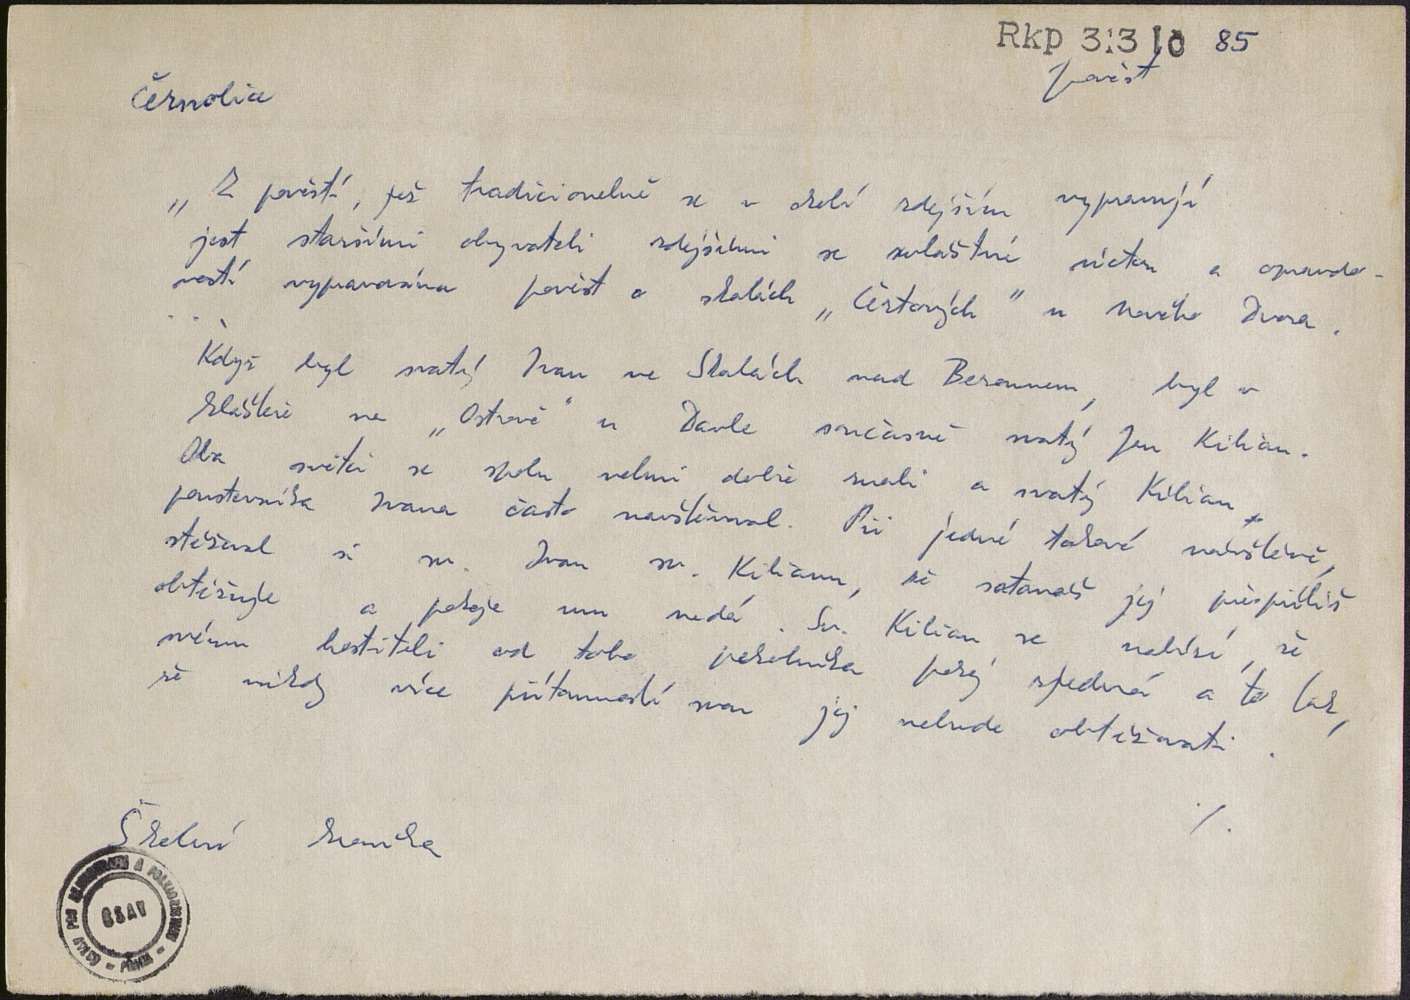 Rkp 313/8 85
pověst
Černolice
„Z pověstí, jež tradicionelně se v okolí zdejším vypravují
jest staršími obyvateli zdejšími se zvláštní úctou a opravdo-
vostí vypravována pověst o skalách „Čertových" u Nového Dvora.
...
Když byl svatý Ivan ve Skalách nad Berounem, byl v
klášteře na „Ostrově" u Davle současně svatý Jan Kilián.
Oba světci se spolu velmi dobře znali a svatý Kilian
poustevníka Ivana často navštěvoval. Při jedné takové návštěvě,
stěžoval si sv. Ivan sv. Kilianu, že satanáš jej příspříliš
obtěžuje a pokoje mu nedá. Sv. Kilian se nabízí, že
svému hostiteli od toho pekelníka pokoj zjedná a to tak,
že nikdy více přítomností svou jej nebude obtěžovati.
./.
Školní kronika
ÚSTAV PRO ETNOGRAFII A FOLKLORISTIKU
ČSAV
– PRAHA –